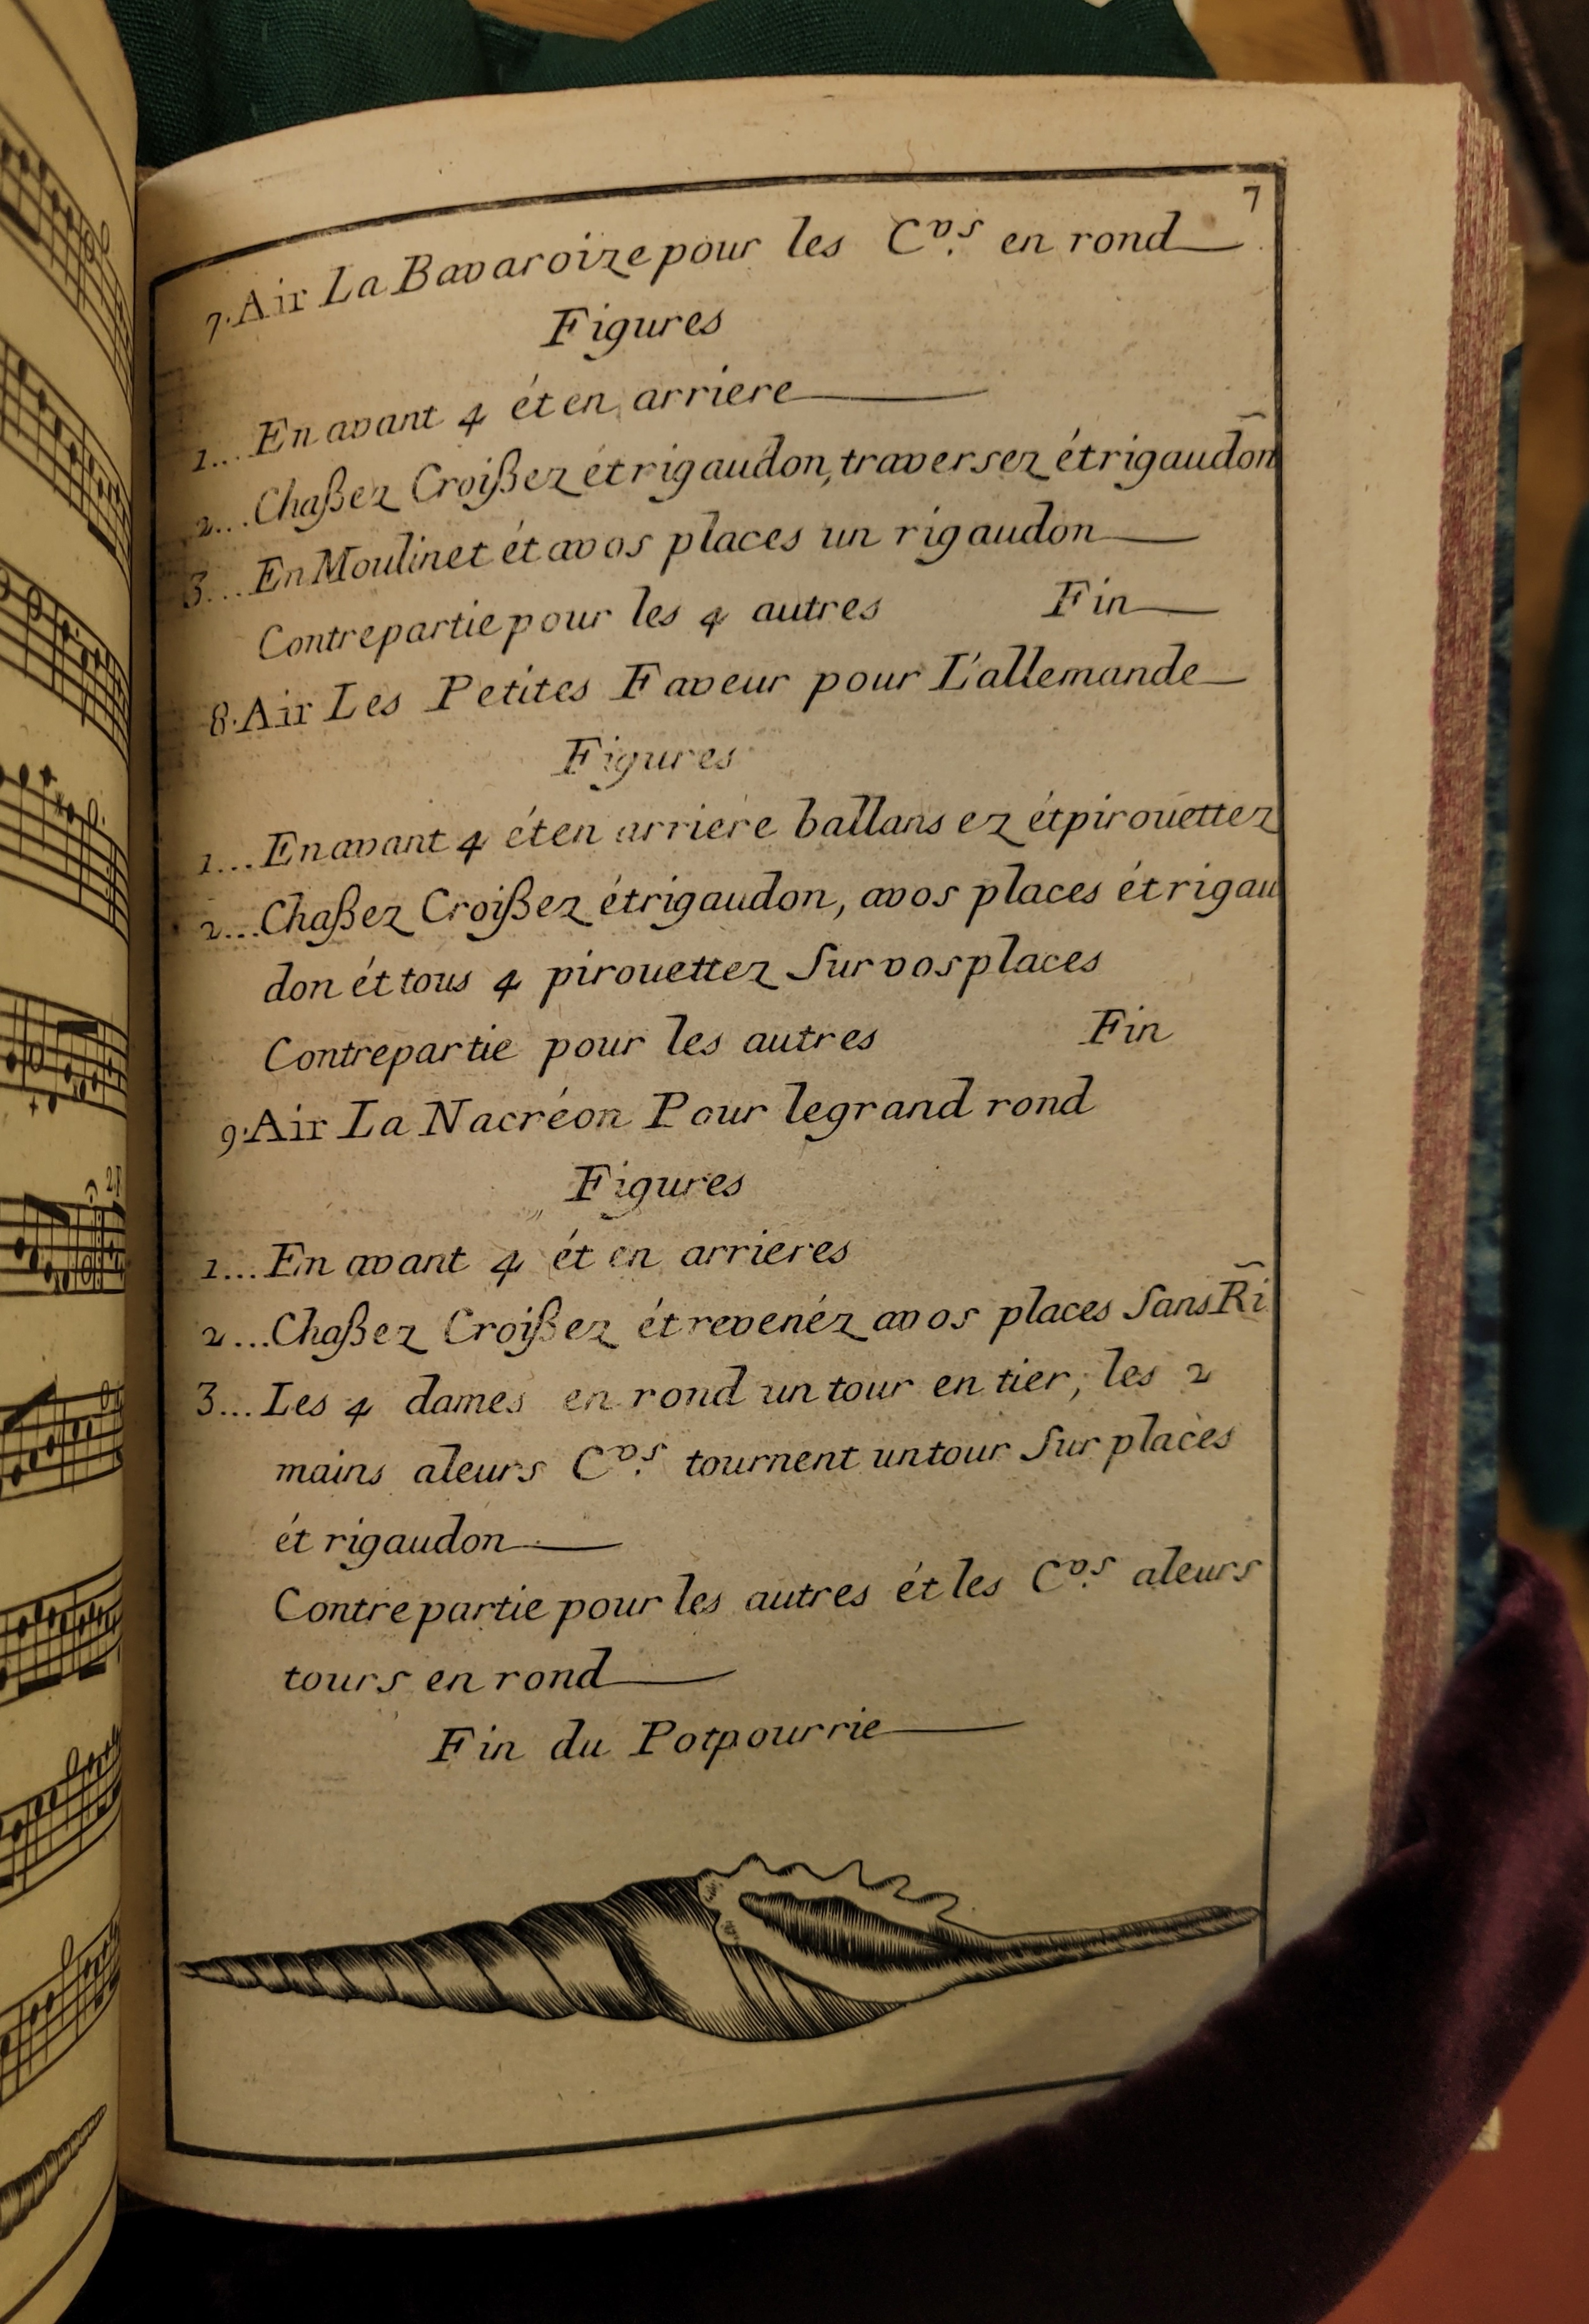 7
7. Air La Bavaroize pour les Cvs. en rond
Figures
1... En avant 4 ét en arriere
2... Chaßez Croißez ét rigaudon, traversez ét rigaudon
3... En Moulinet ét avos places un rigaudon
Contrepartie pour les 4 autres Fin
8. Air Les Petites Faveur pour L'allemande
Figures
1... En avant 4 ét en arriere ballansez ét pirouettez
2... Chaßez Croißez ét rigaudon, avos places ét rigau
don ét tous 4 pirouettez Sur vos places
Contrepartie pour les autres Fin
9. Air La Nacréon Pour le grand rond
Figures
1... En avant 4 ét en arrieres
2... Chaßez Croißez ét revenéz avos places Sans Ri
3... Les 4 dames en rond un tour en tier, les 2
mains aleurs Cvs. tournent un tour Sur places
ét rigaudon
Contrepartie pour les autres ét les Cvs. aleurs
tours en rond
Fin du Potpourrie